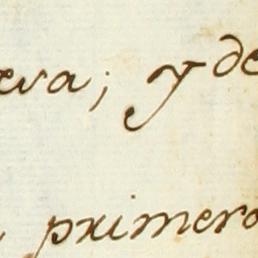 eva; y de
primero